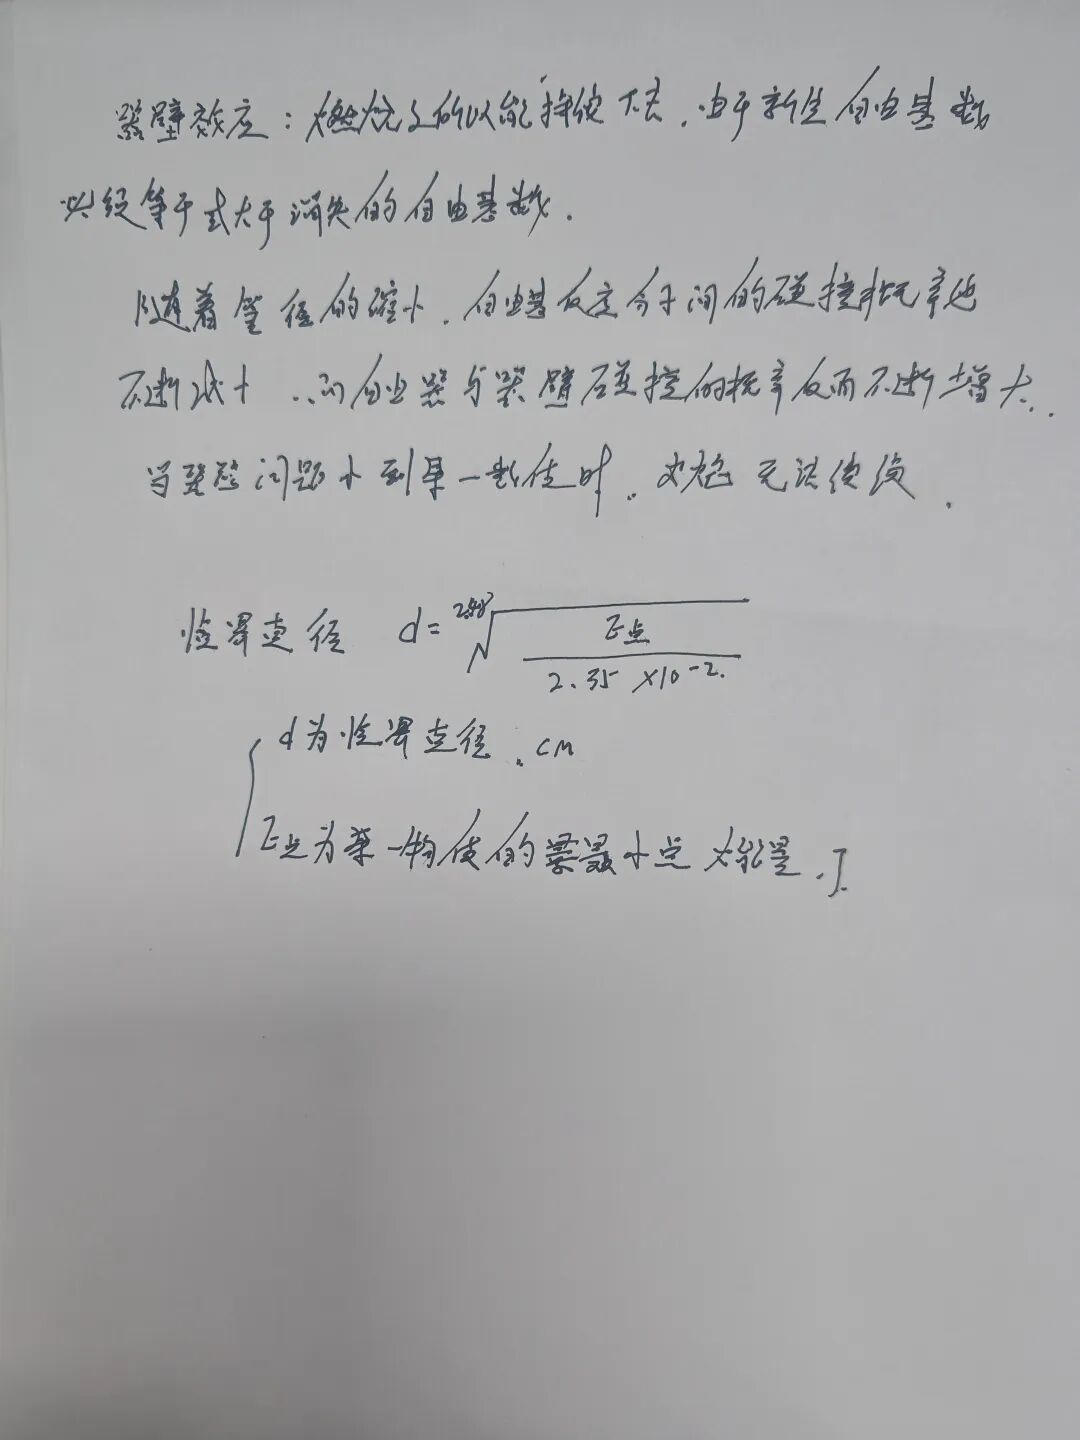 器壁效应：燃烧之所以能持续下去，由于新生自由基数
必须等于或大于消失的自由基数．
随着管径的缩小，自由基反应分子间的碰撞概率也
不断减小，而自由基与器壁碰撞的概率反而不断增大．
当器壁间距小到某一数值时，火焰无法继续．
临界直径 d = \sqrt[2.48]{\frac{E点}{2.35 ×10^{-2}}}
d为临界直径，cm
E点为某一物质的最小点火能量，J．